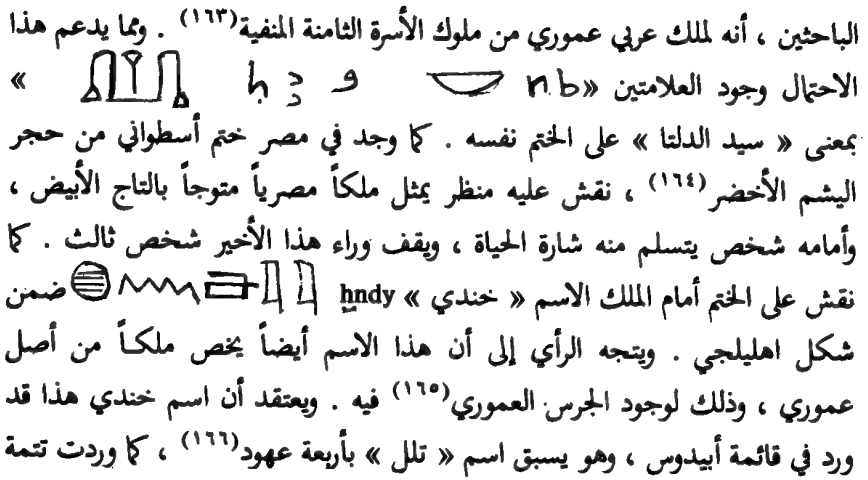 الباحثين ، أنه لملك عربي عموري من ملوك الأسرة الثامنة المنفية(١٦٣) . ومما يدعم هذا
الاحتمال وجود العلامتين «n.b و »
بمعنى « سيد الدلتا » على الختم نفسه . كما وجد في مصر ختم أسطواني من حجر
اليشم الأخضر(١٦٤) ، نقش عليه منظر يمثل ملكاً مصرياً متوجاً بالتاج الأبيض ،
وأمامه شخص يتسلم منه شارة الحياة ، ويقف وراء هذا الأخير شخص ثالث . كما
نقش على الختم أمام الملك الاسم « خندي » ẖndy ضمن
شكل اهليلجي . ويتجه الرأي إلى أن هذا الاسم أيضاً يخص ملكاً من أصل
عموري ، وذلك لوجود الجرس العموري(١٦٥) فيه . ويعتقد أن اسم خندي هذا قد
ورد في قائمة أبيدوس ، وهو يسبق اسم « تلل » بأربعة عهود(١٦٦) ، كما وردت تتمة